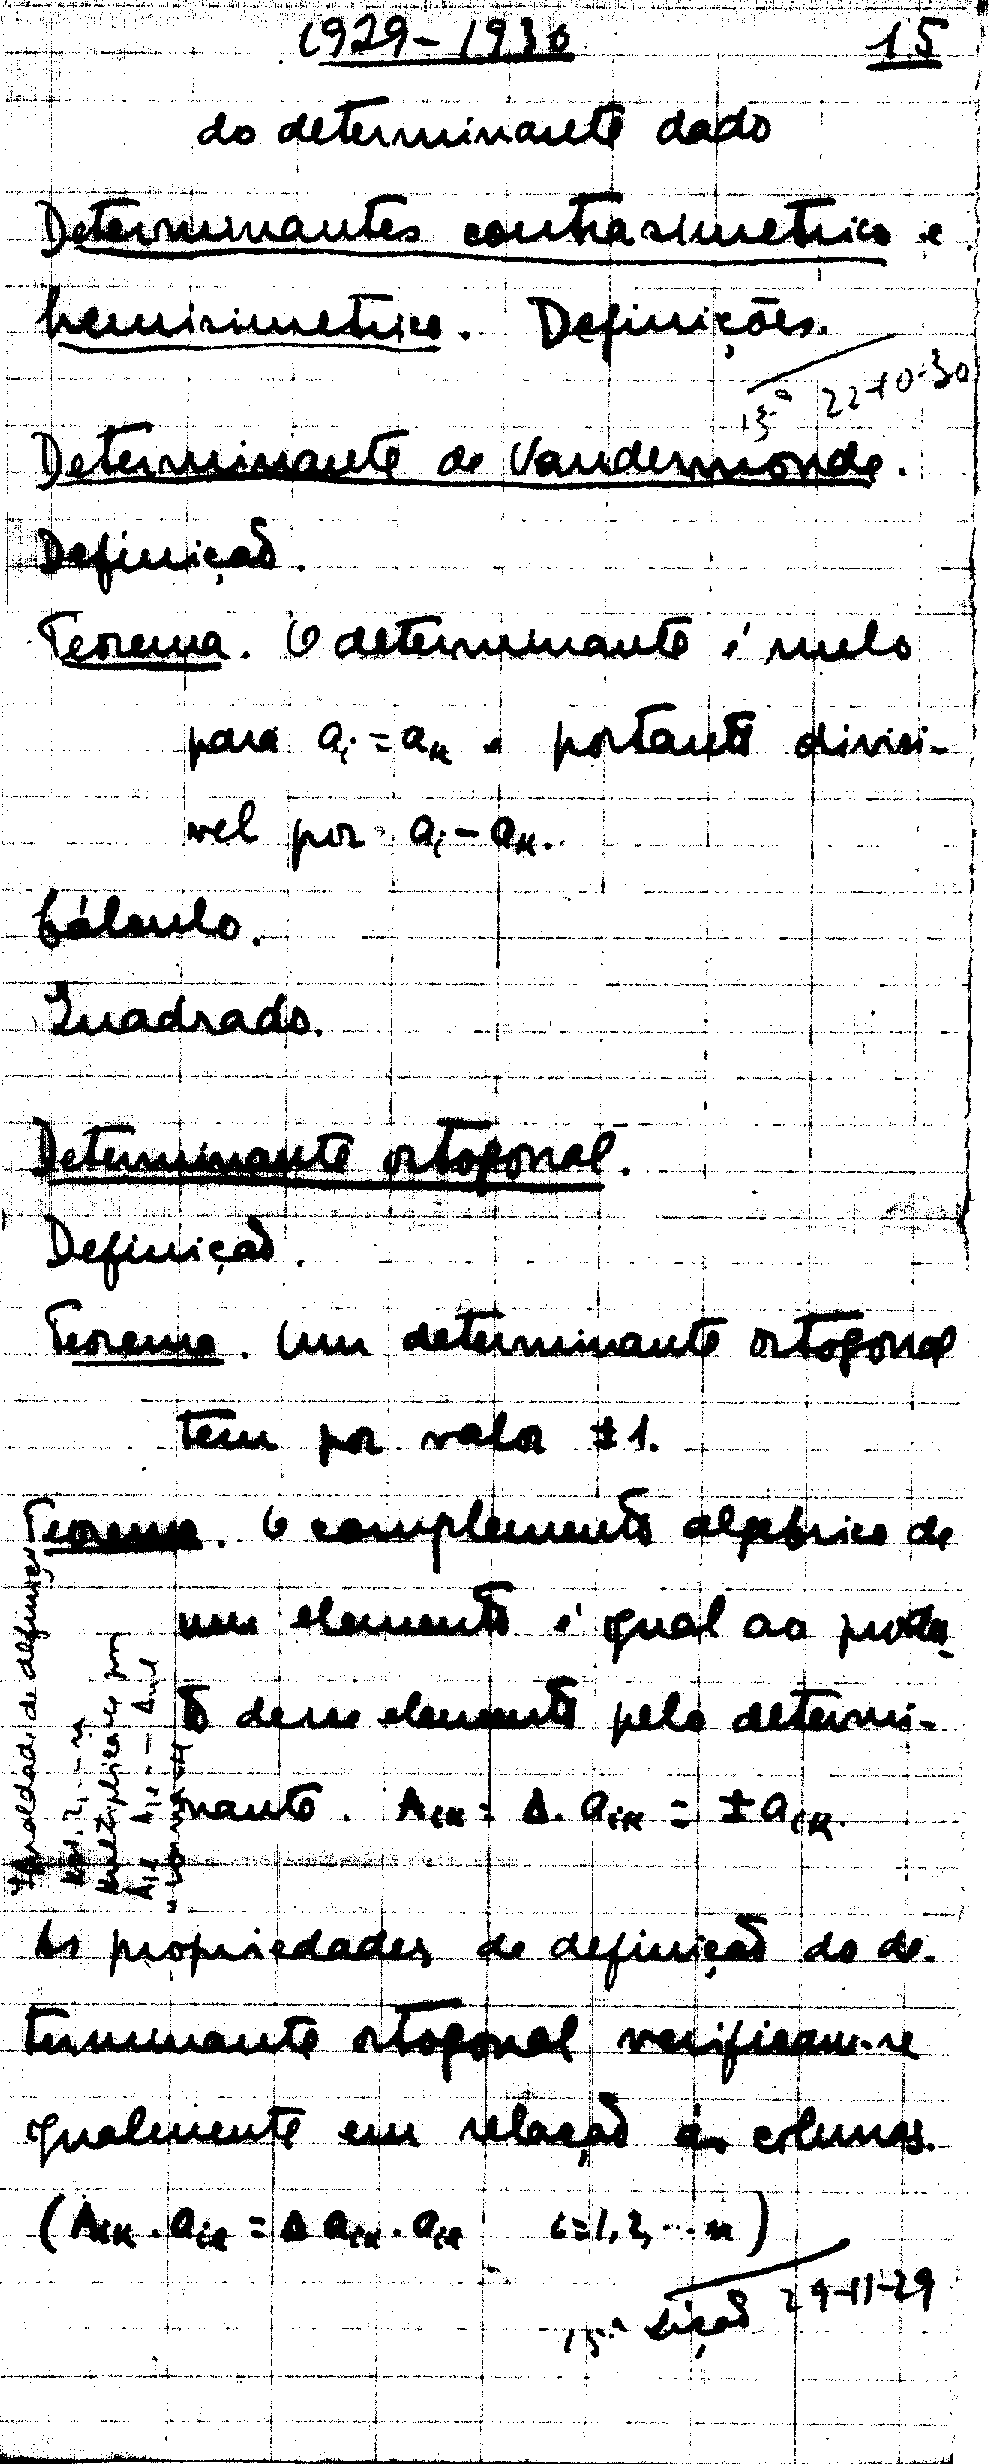 1929-1930 15
do determinante dado
Determinantes contrasimetrico e
hemisimetrico. Definições.
13ª 22-10-30
Determinante de Vandermonde.
Definição.
Teorema. O determinante é nulo
para a_i = a_k e portanto divisi-
vel por a_i - a_k.
Cálculo.
Quadrado.
Determinante ortogonal.
Definição.
Teorema. Um determinante ortogonal
tem por valor ±1.
Teorema. O complemento algebrico de
um elemento é igual ao produ-
to desse elemento pelo determi-
nante. A_ik = Δ. a_ik = ± a_ik.
Igualdades de definição
multiplicar por
As propriedades de definição do de-
terminante ortogonal verificam-se
igualmente em relação ás colunas.
(A_ik . a_il = Δ a_ik . a_il i=1, 2, ... n)
15ª Lição 29-11-29